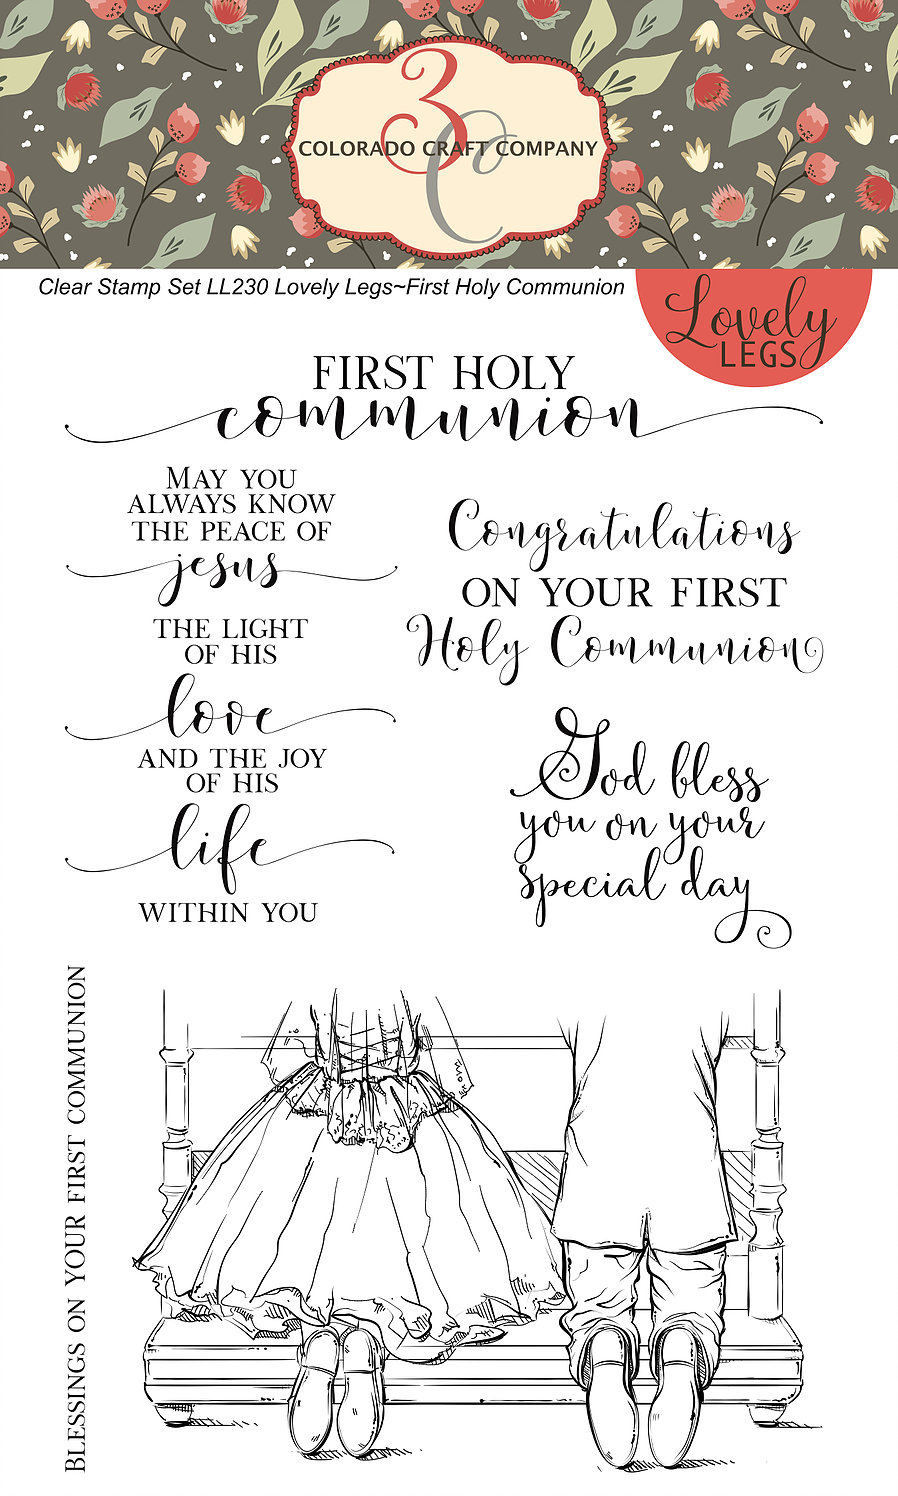 3C
COLORADO CRAFT COMPANY
Clear Stamp Set LL230 Lovely Legs~First Holy Communion
Lovely
LEGS
FIRST HOLY
communion
MAY YOU
ALWAYS KNOW
THE PEACE OF
jesus
THE LIGHT
OF HIS
love
AND THE JOY
OF HIS
life
WITHIN YOU
Congratulations
ON YOUR FIRST
Holy Communion
God bless
you on your
special day
BLESSINGS ON YOUR FIRST COMMUNION